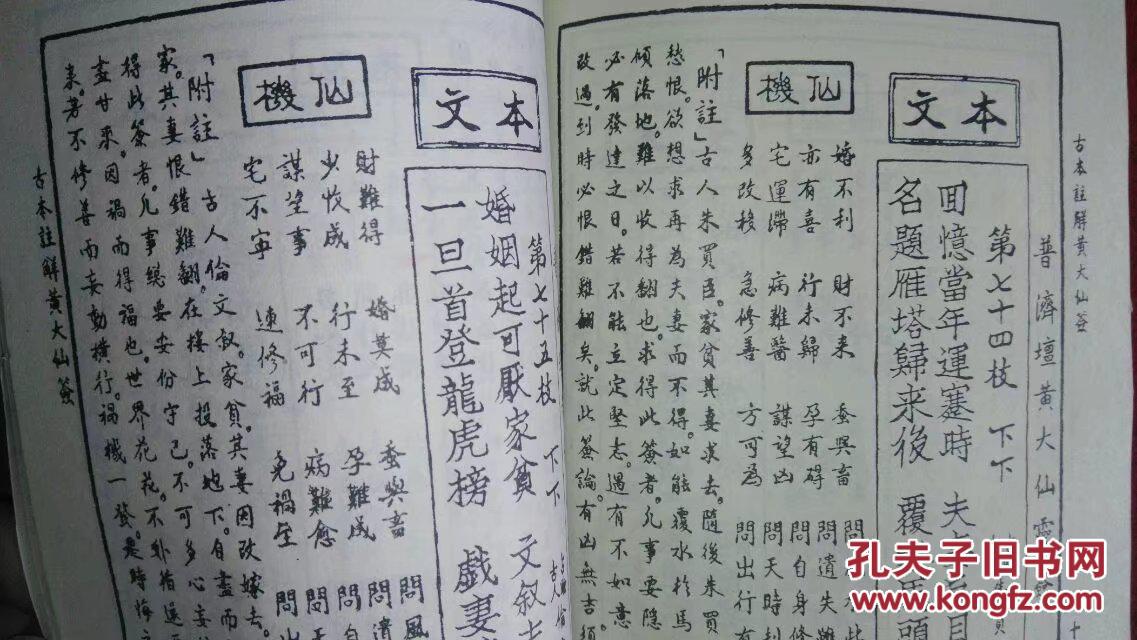 古本註解黃大仙簽
普濟壇黃大仙靈
本文
第七十四枝 下下
回憶當年運蹇時 夫
名題雁塔歸来後 覆
仙機
婚不利 財不来 蚕與畜 問
亦有喜 行未歸 孕有碍 問遺失
宅運滯 病難醫 謀望凶 問自身修
多改移 急修善 方可為 問天時
問出行有
「附註」古人朱買臣。家貧其妻求去。隨後朱買
愁恨。欲想求再為夫妻而不得。如能覆水於馬
傾落地。難以收得翻也。求得此簽者。凡事要隱
必有發達之日。若不能立定堅志。遇有不如意
改過。到時必恨錯難翻矣。就此簽論。有凶無吉須
本文
第七十五枝 下下 古人
婚姻起可厭家貧 文叙
一旦首登龍虎榜 戲妻
仙機
財難得 婚莫成 蚕與畜 問風
少收成 行未至 孕難成 問
謀望事 不可行 病難愈 問自
宅不寧 速修福 免禍 問
「附註」古人倫文叙。家貧。其妻因改嫁去。
家。其妻恨錯難翻。在接上投落地下。自盡而
得此簽者。凡事總要安份守己。不可多心妄
盡甘来。因禍而得福也。世界花花。不
来。若不修善而妄動横行。禍機一發。是時悔
古本註解黃大仙簽
孔夫子旧书网
www.kongfz.com